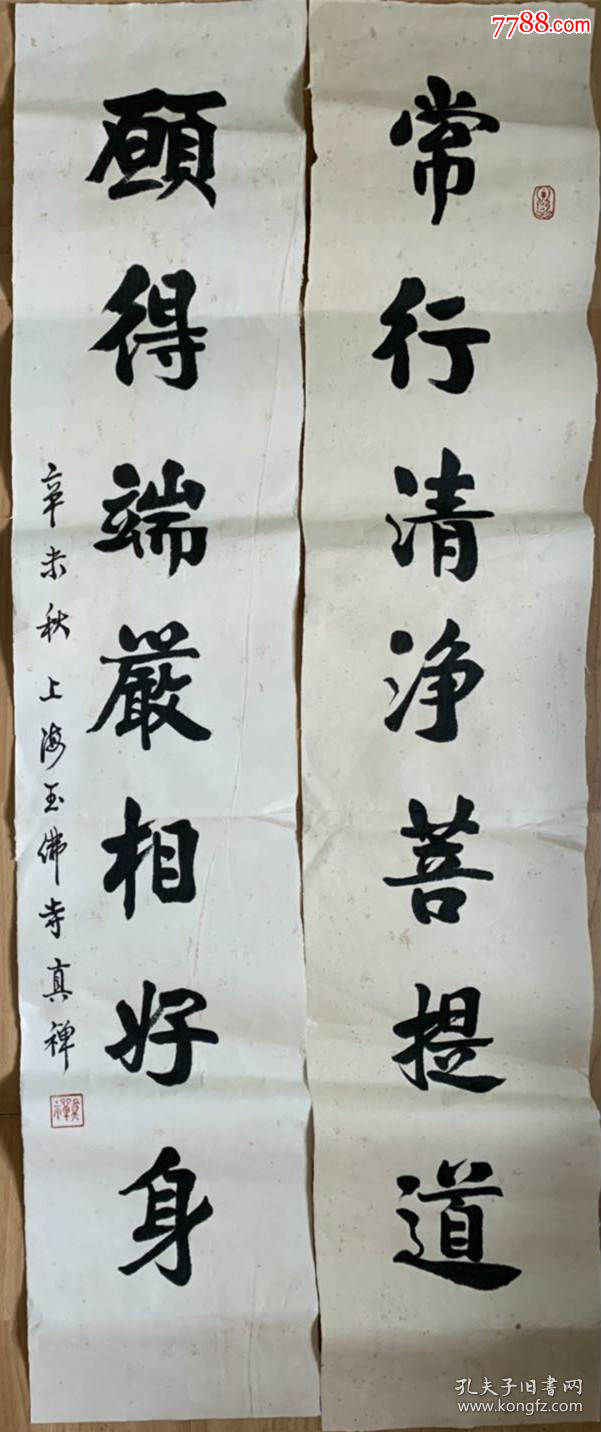 7788.com
常行清净菩提道
願得端嚴相好身
辛未秋 上海玉佛寺真禅
孔夫子旧书网
www.kongfz.com